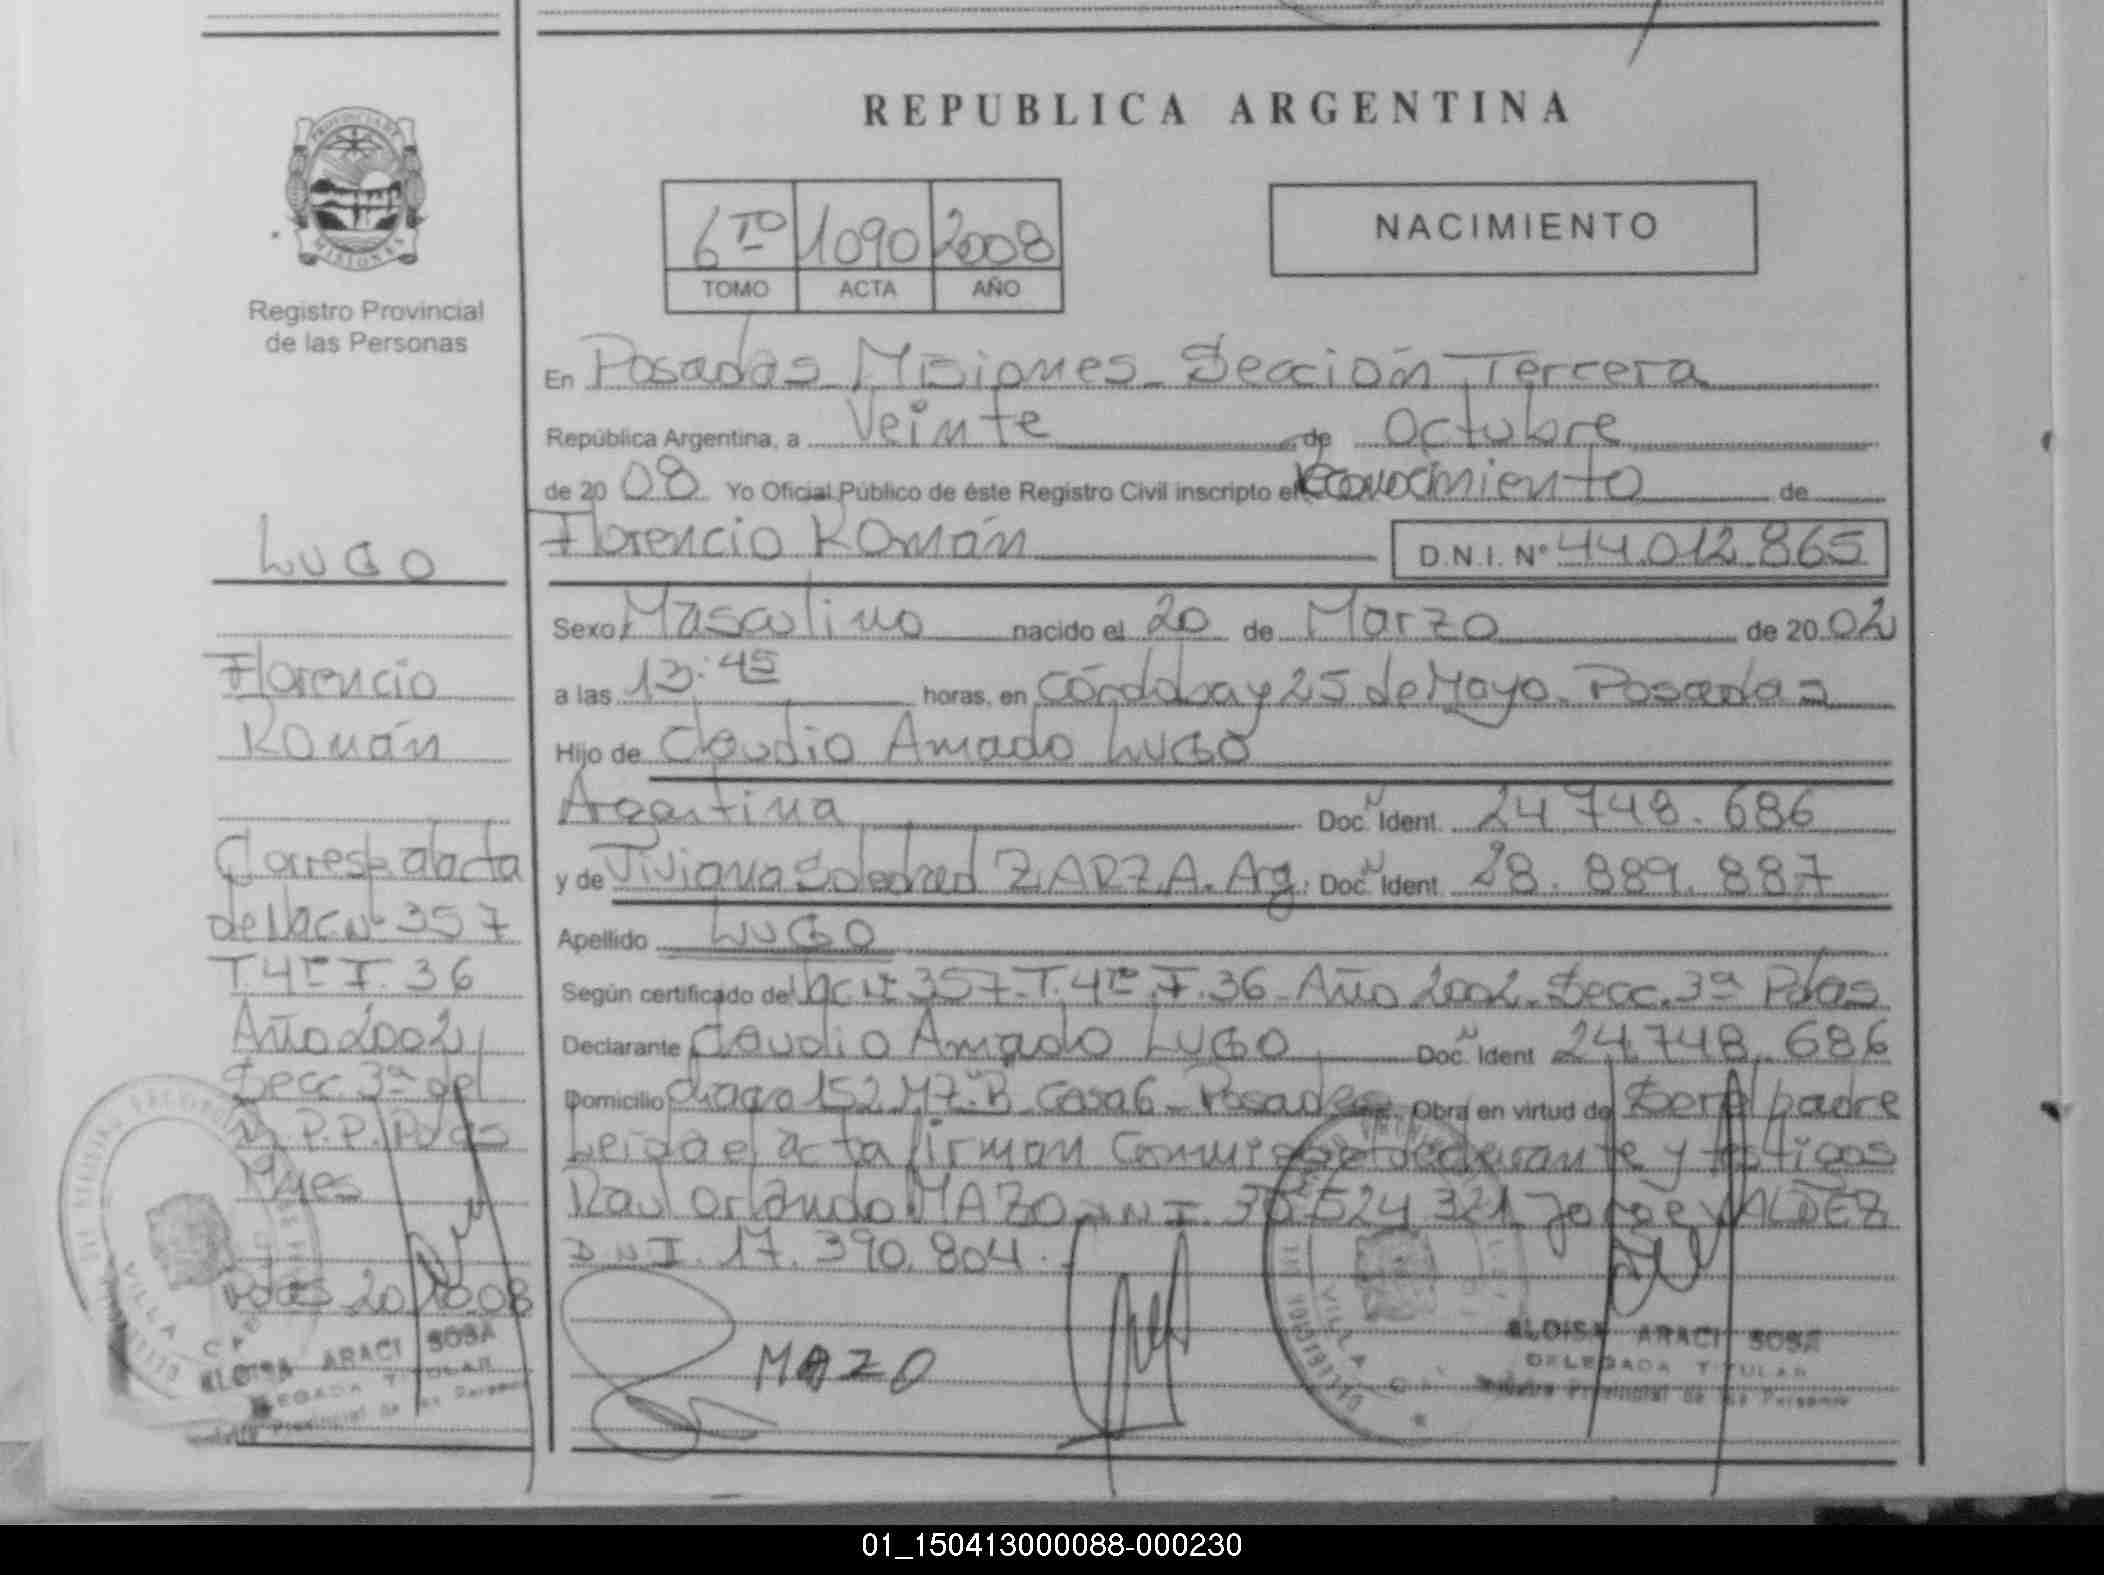 REPUBLICA ARGENTINA
PROVINCIA DE
MISIONES
Registro Provincial
de las Personas
6TO 1090 2008
TOMO ACTA AÑO
NACIMIENTO
En Posadas Misiones Sección Tercera
República Argentina, a Veinte de Octubre
de 20 08 Yo Oficial Público de éste Registro Civil inscripto el reconocimiento de
Florencio Román D.N.I. Nº 44.012.865
Sexo Masculino nacido el 20 de Marzo de 20 02
a las 13:45 horas, en Córdoba y 25 de Mayo. Posadas
Hijo de Claudio Amado LUGO
Argentina Doc. Ident. 24.748.686
y de Viviana Soledad ZARZA. Arg. Doc. Ident. 28.889.887
Apellido LUGO
Según certificado de Nac Nº 357. T. 4to F. 36 Año 2002. Secc. 3ª Pdas
Declarante Claudio Amado LUGO Doc. Ident 24.748.686
Domicilio 152 Mz. B Casa 6 Posadas Obra en virtud de Ser el padre
Leida el acta firman conmigo el declarante y testigos
Raul Orlando MAZO DNI. 524 321 Jorge VALDEZ
D.N.I. 17.390.804.
MAZO
ELOISA ARACI SOSA
DELEGADA TITULAR
Registro Provincial de las Personas
LUGO
Florencio
Román
Corresp al acta
de Nac Nº 357
T. 4to F. 36
Año 2002
Secc. 3ª del
R.P.P. Pdas
Mnes
Pdas 20/10.08
ELOISA ARACI SOSA
DELEGADA TITULAR
Registro Provincial de las Personas
01_150413000088-000230